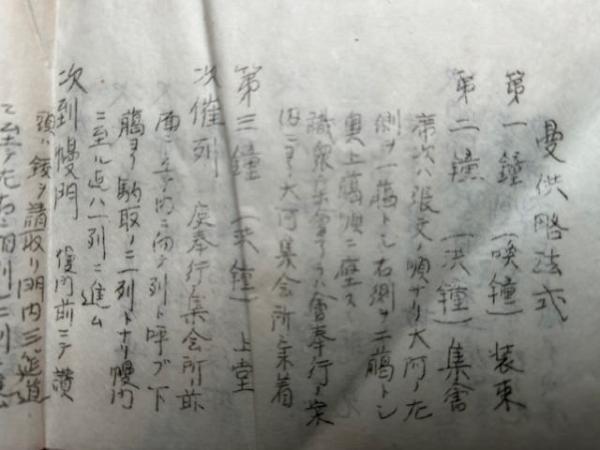 曼供略法式
第一鐘（喚鐘）装束
第二鐘（洪鐘）集會
席次ハ張文ノ順ナリ大阿ノ左
側ヲ一臈トシ右側ヲ二臈トシ
奥上臈順ニ座ス
識衆集會セハ會奉行ノ案
内ニヨリ大阿集会所ニ来着
第三鐘（洪鐘）上堂
次催列 庭奉行集会所ノ前
庭ニ立テ内ニ向テ列ト呼ブ下
臈ヨリ駒取ノ二列トナリ幔門
ニ至ル迄ハ一列ニ進ム
次到幔門 幔門前ニテ讃
頭ハ鈸ヲ請取リ門内ニ筵道
ニ至テ左右二列